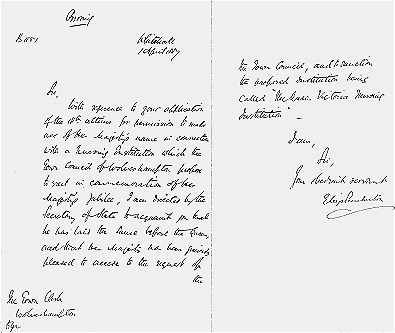 Whitehall
1 April 1887
Sir,
With reference to your application
of the 18th ultimo for permission to make
use of Her Majesty's name in connection
with a Nursing Institution which the
Town Council of Wolverhampton propose
to erect in commemoration of Her
Majesty's Jubilee, I am directed by the
Secretary of State to acquaint you that
he has laid the same before the Queen,
and that Her Majesty has been graciously
pleased to accede to the request of
the
The Town Clerk
Wolverhampton
the Town Council, and to sanction
the proposed Institution being
called "The Queen Victoria Nursing
Institution"
I am,
Sir,
Your obedient servant